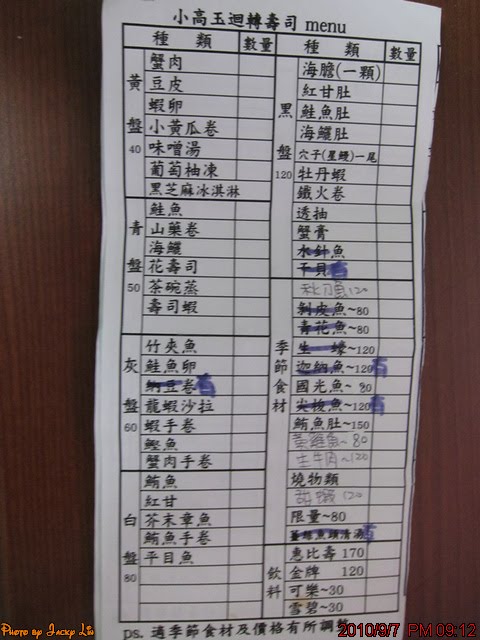 小高玉迴轉壽司 menu
種 類 數量 種 類 數量
黃盤40
蟹肉
豆皮
蝦卵
小黃瓜卷
味噌湯
葡萄柚凍
黑芝麻冰淇淋
青盤50
鮭魚
山藥卷
海鱺
花壽司
茶碗蒸
壽司蝦
灰盤60
竹夾魚
鮭魚卵
納豆卷
龍蝦沙拉
蝦手卷
鰹魚
蟹肉手卷
白盤80
鮪魚
紅甘
芥末章魚
鮪魚手卷
平目魚
黑盤120
海膽(一顆)
紅甘肚
鮭魚肚
海鱺肚
穴子(星鰻)一尾
牡丹蝦
鐵火卷
透抽
蟹膏
水針魚
干貝
季節食材
秋刀魚 120
剝皮魚~80
青花魚~80
生 蠔~120
迦納魚~120
國光魚~80
尖梭魚~120
鮪魚肚~150
黃雞魚~80
生牛肉~120
燒物類
甜蝦 120
限量~80
魚頭清湯
飲料
惠比壽 170
金牌 120
可樂~30
雪碧~30
ps. 適季節食材及價格有所調整
Photo by Jacky Lin
2010/9/7 PM 09:12